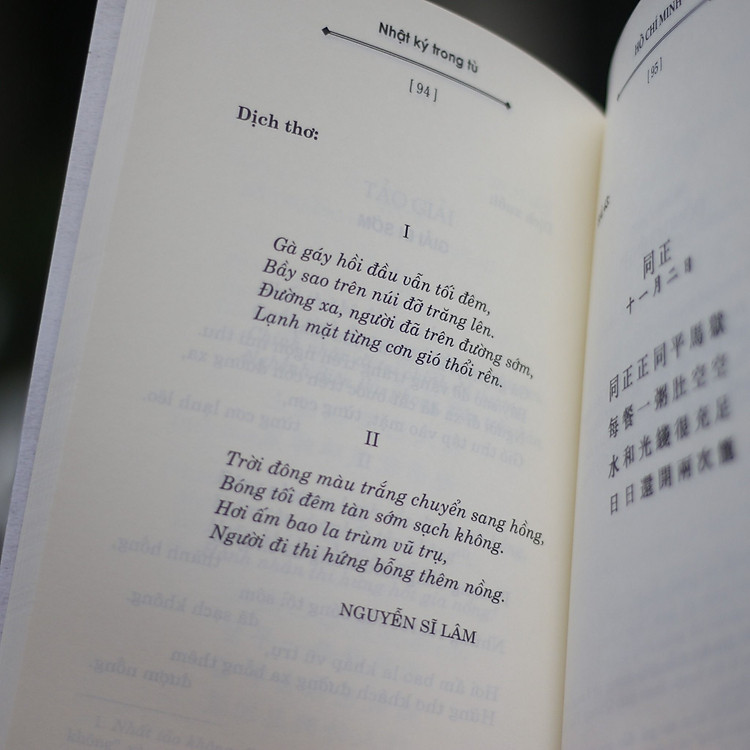 Nhật ký trong tù
[ 94 ]
Dịch thơ:
I
Gà gáy hồi đầu vẫn tối đêm,
Bầy sao trên núi đỡ trăng lên.
Đường xa, người đã trên đường sớm,
Lạnh mặt từng cơn gió thổi rền.
II
Trời đông màu trắng chuyển sang hồng,
Bóng tối đêm tàn sớm sạch không.
Hơi ấm bao la trùm vũ trụ,
Người đi thi hứng bỗng thêm nồng.
NGUYỄN SĨ LÂM
HỒ CHÍ MINH
[ 95 ]
同正
十一月二日
同正正同平馬獄
每餐一粥肚空空
水和光線很充足
日日還開兩次籠